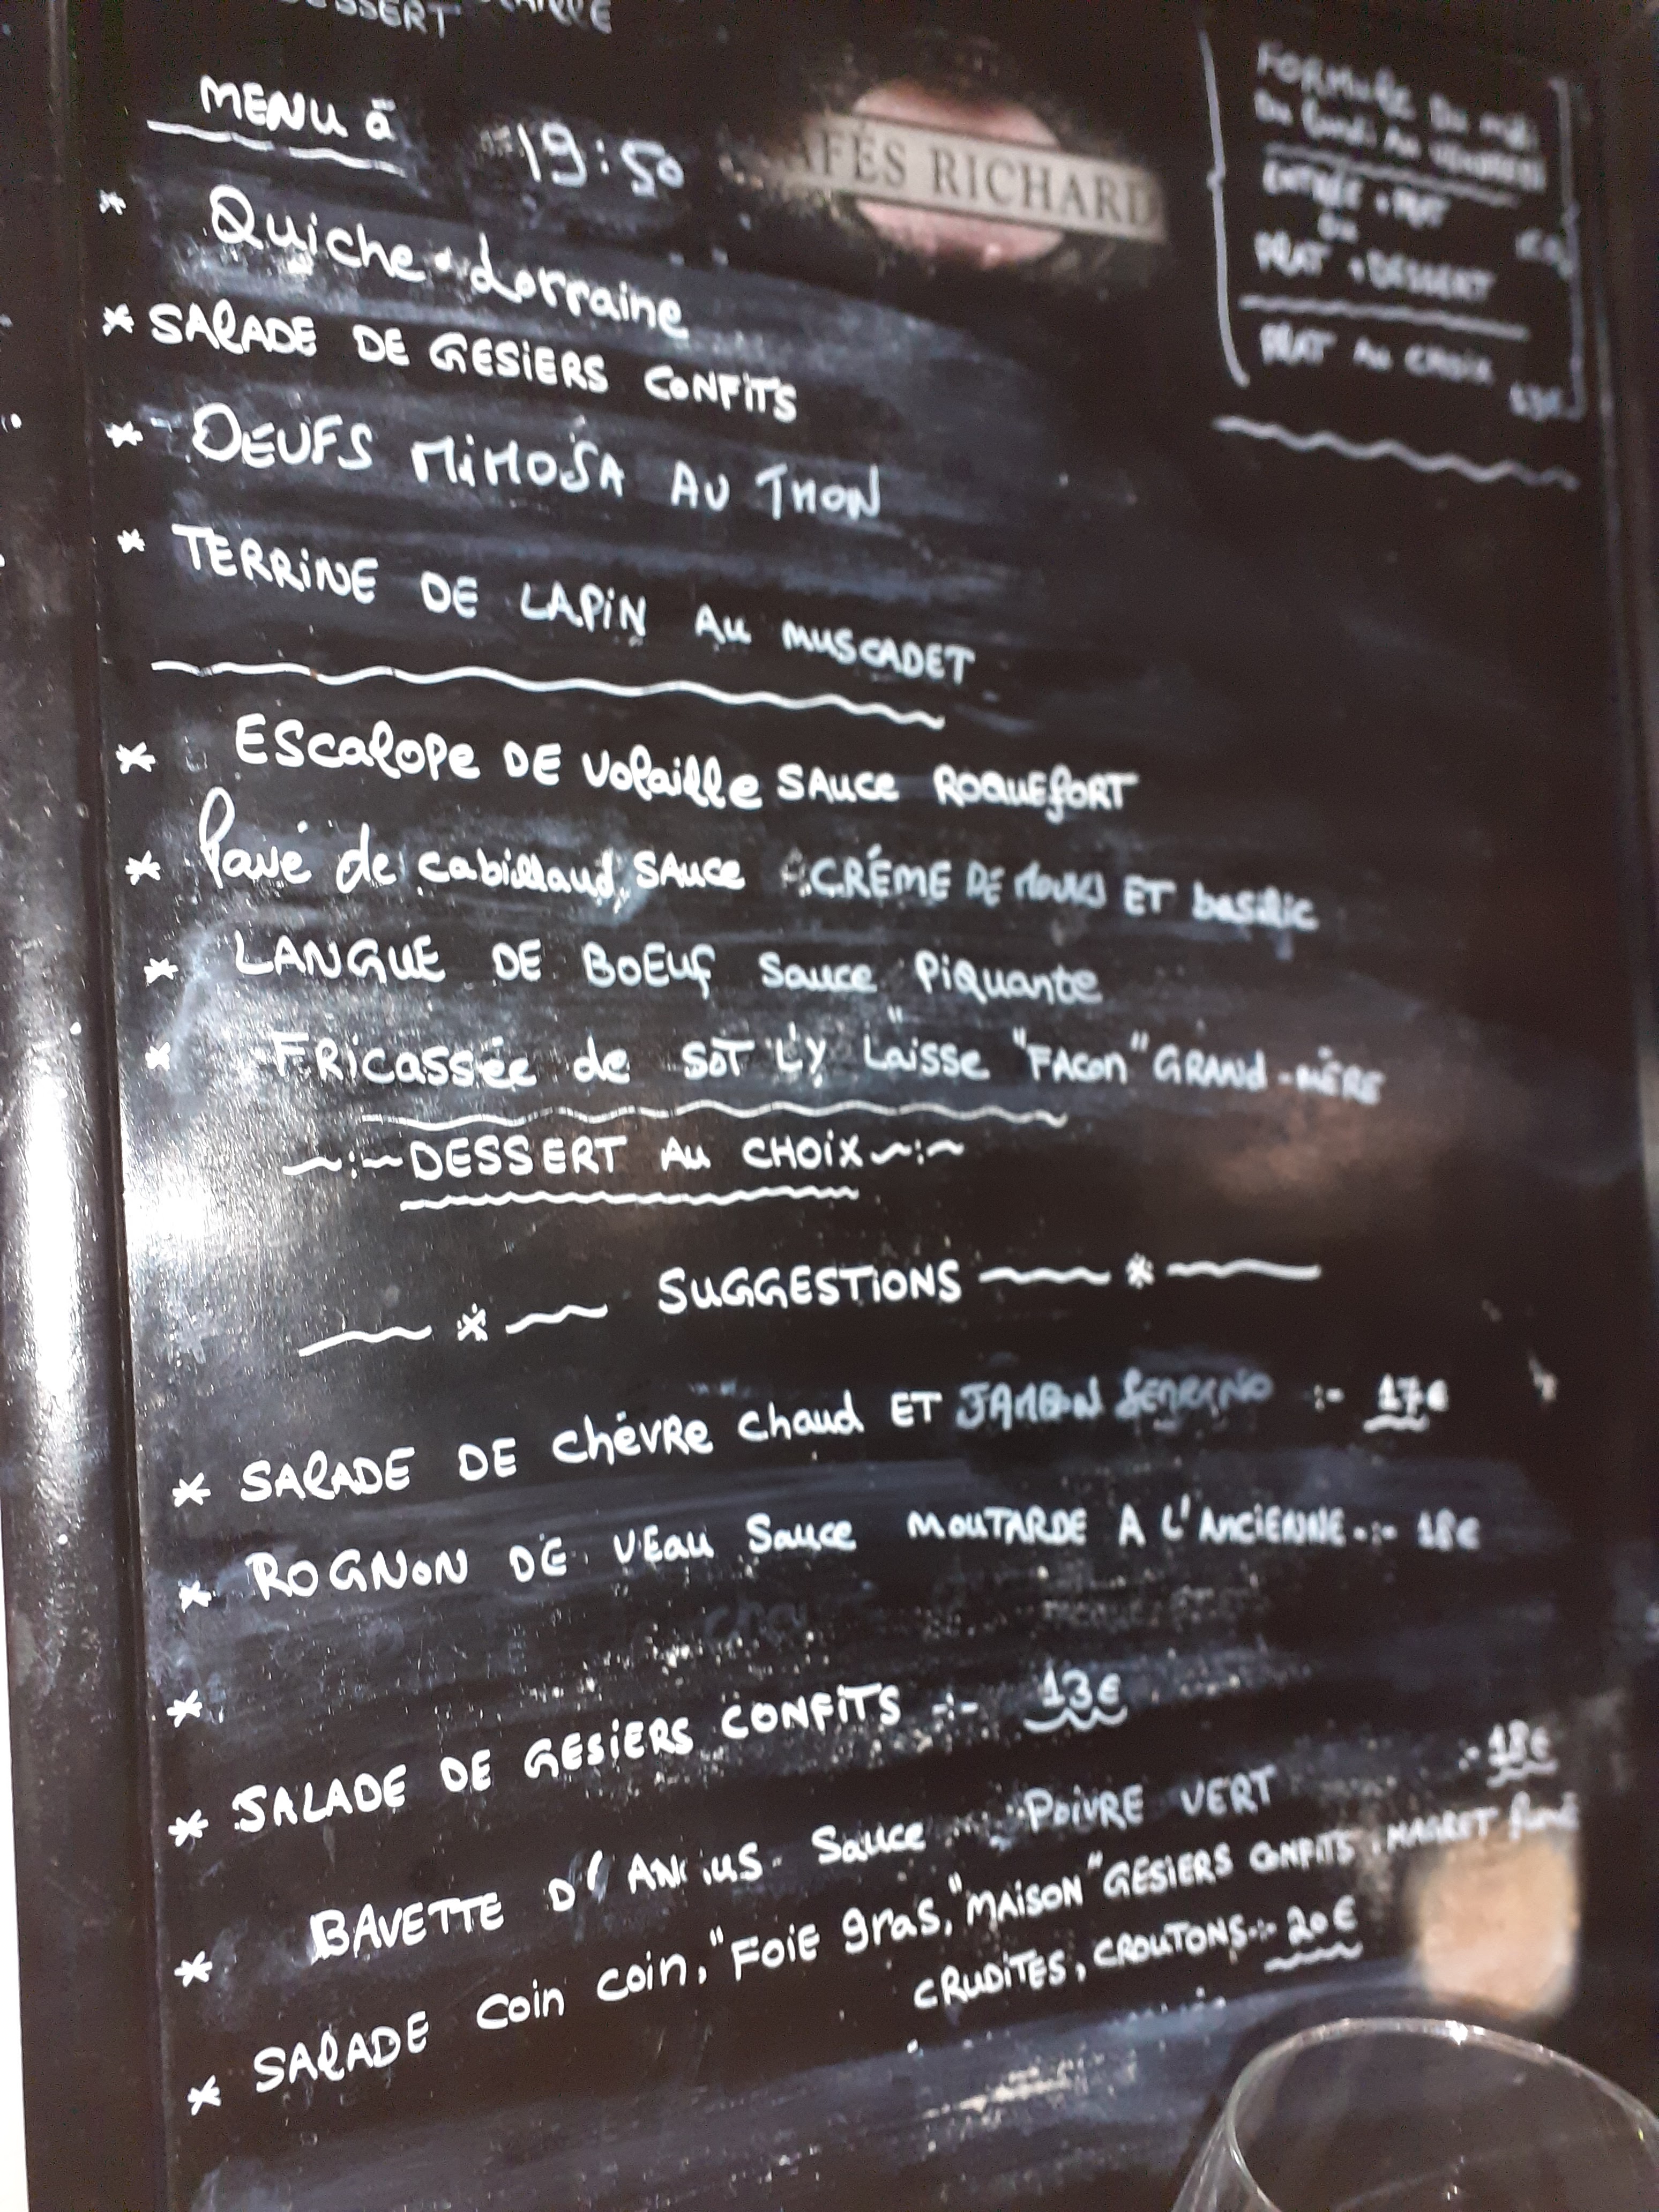 DESSERT
MENU à 19:50
AFÉS RICHARD
* Quiche Lorraine
* SALADE DE GESIERS CONFITS
* OEUFS MiMOSA AU THON
* TERRiNE DE LAPiN AU MUSCADET
* ESCALOPE DE Volaille SAUCE ROQUEfORT
* Pavé de cabillaud, SAUCE CRÉME DE ET basilic
* LANGUE DE BOEUf Sauce Piquante
* FRicassée de SOT L'Y Laisse "FAcon" GRANd-MÈRE
~:~DESSERT AU CHOiX~:~
~*~ SUGGESTiONS ~*~
* SALADE DE chévRe chaud ET JAMBON SERRANO :- 17€
* ROGNON DE VEau Sauce MOUTARDE A L'ANCiENNE.:- 18€
*
* SALADE DE GESiERS CONFiTS -:- 13€
* BAVETTE D' Sauce POiVRE VERT - 18€
* SALADE coin coin, "FOiE gras, "MAiSON" GÉSiERS CONFITS, MAGRET fumé
CRUDiTES, CROUTONS.:- 20€
FORMULE DU midi
Du lundi AU VENDREDI
ENTRÉE + PLAT
OU
PLAT + DESSERT
PLAT AU CHOIX